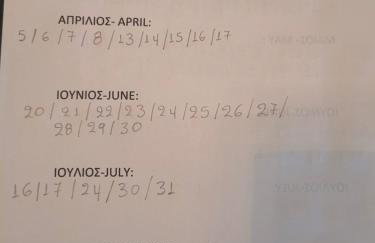 ΑΠΡΙΛΙΟΣ- APRIL:
5/6/7/8/13/14/15/16/17
ΙΟΥΝΙΟΣ-JUNE:
20/21/22/23/24/25/26/27/
28/29/30
ΙΟΥΛΙΟΣ-JULY:
16/17/24/30/31